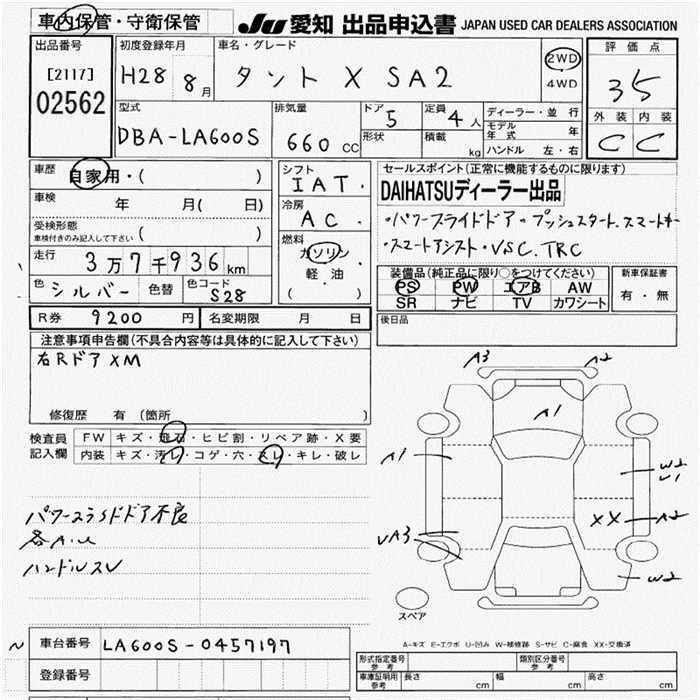 車内保管・守衛保管 JU 愛知 出品申込書 JAPAN USED CAR DEALERS ASSOCIATION
出品番号 初度登録年月 車名・グレード 評価点
[2117] H28 8月 タント X SA2 2WD 35
02562 4WD
型式 排気量 ドア 定員 外装 内装
DBA-LA600S 660 CC 5 4人 ディーラー・並行 C C
形状 積載 kg モデル年式 年
ハンドル 左・右
車歴 自家用・( ) シフト IAT. セールスポイント(正常に機能するものに限ります)
車検 年 月( 日) 冷房 AC. DAIHATSUディーラー出品
受検形態 ( ) ・パワースライドドア・プッシュスタート.スマートキー
車検付きのみ記入して下さい 燃料 ガソリン ・スマートアシスト・VSC.TRC
走行 3万7千936km 軽油 装備品(純正品に限り○をつけてください) 新車保証書
色 シルバー 色替 色コード S28 ( ) PS PW エアB AW 有・無
SR ナビ TV カワシート
R券 9200円 名変期限 月 日 後日品
注意事項申告欄(不具合内容等は具体的に記入して下さい)
右RドアXM
修復歴 有 (箇所 )
検査員 FW キズ・飛石・ヒビ割・リペア跡・X要
記入欄 内装 キズ・汚レ・コゲ・穴・スレ・キレ・破レ
A3 A2
A1
A1 W2
U1
XX A2
UA3
W2
スペア
パワースライドドア不良
各A.U
ハンドルスレ
A-キズ E-エクボ U-凹み W-補修跡 S-サビ C-腐食 XX-交換済
車台番号 LA600S-0457197
登録番号
形式指定番号 参考 類別区分番号 参考
車庫証明用 参考 長さ cm 幅 cm 高さ cm